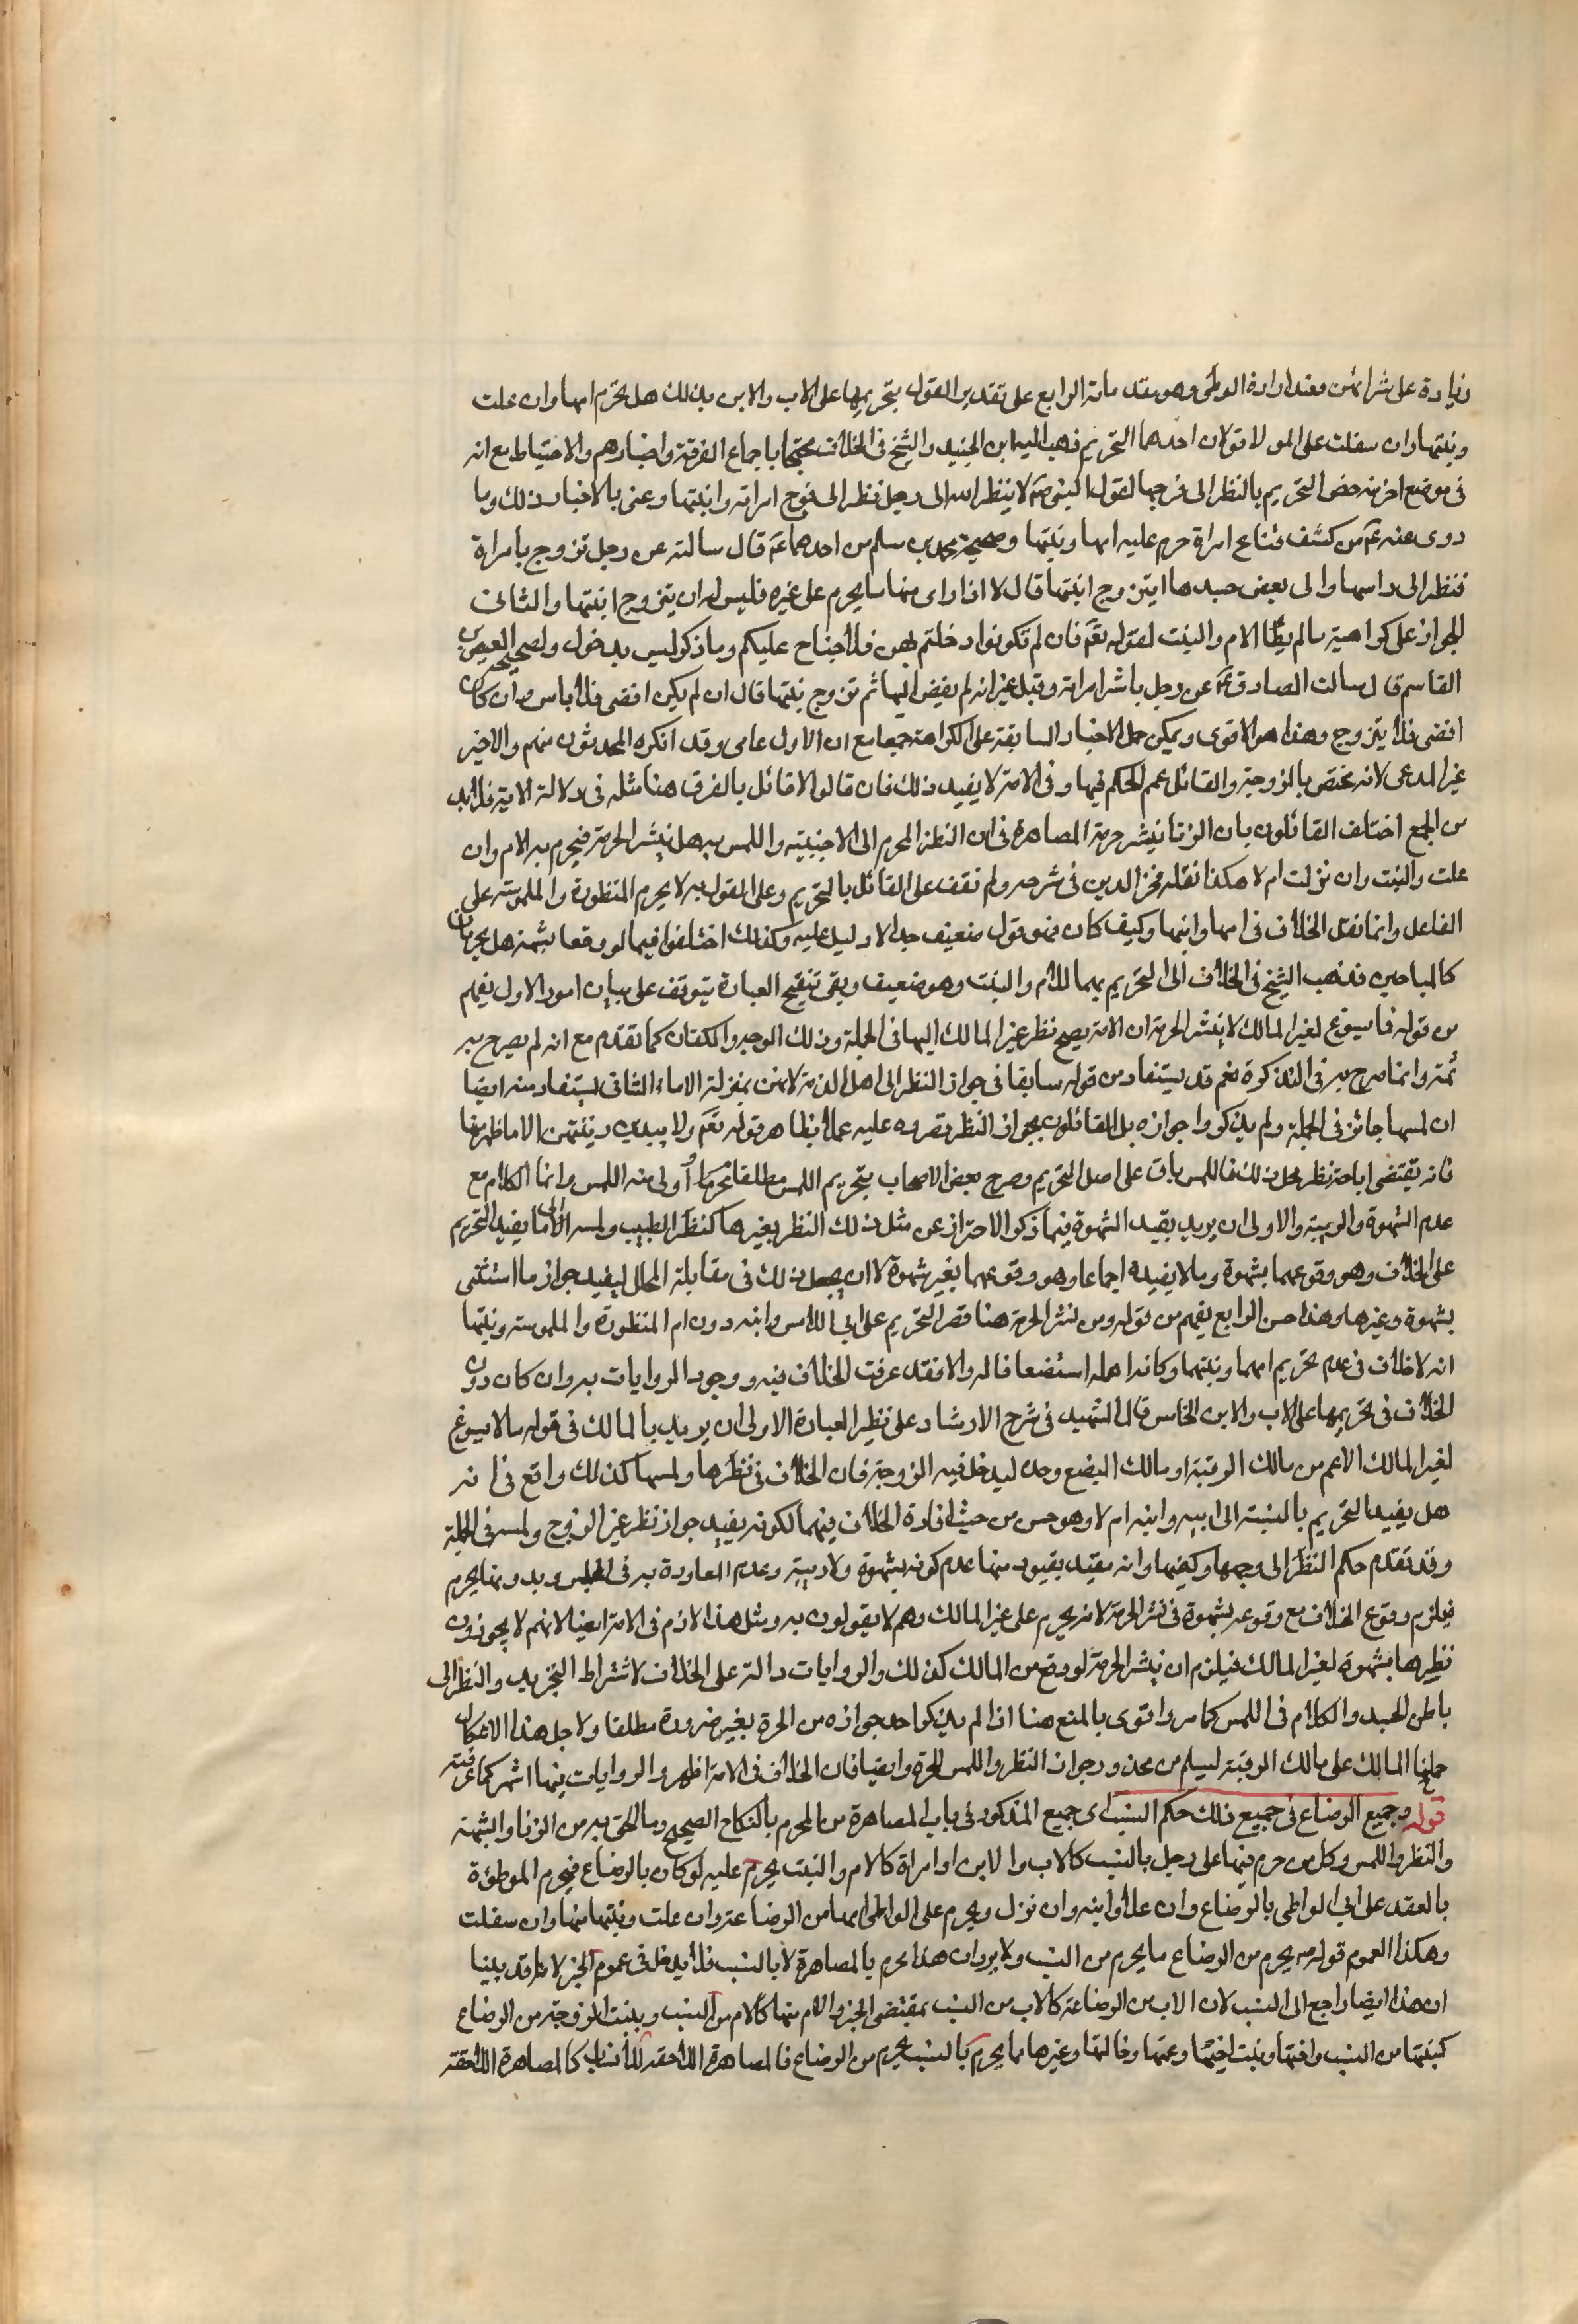 زيادة على شرائهن فعند ارادة الوطئ وهو مقدماته الرابع على تقدير القول بتحريمها على الاب والابن بذلك هل يحرم امها وان علت
وبنتها وان سفلت على المولا قولان احدهما التحريم ذهب اليه ابن الجنيد والشيخ في الخلاف محتجا باجماع الفرقة واخبارهم والاحتياط مع انه
في موضع اخر منه خص التحريم بالنظر الى فرجها لقول النبي صم لا ينظر الله الى رجل نظر الى فرج امراته وابنتها وعنى بالاخبار ذلك وما
روى عنه عم من كشف قناع امراة حرم عليه امها وبنتها وصحيحة محمد بن مسلم من احدهما عم قال سالته عن رجل تزوج بامراة
فنظر الى راسها والى بعض جسدها ايتزوج ابنتها قال لا اذا راى منها ما يحرم على غيره فليس له ان يتزوج ابنتها والثانى
الجواز على كراهية ما لم يطا الام والبنت لقوله تعم فان لم تكونوا دخلتم بهن فلا جناح عليكم وما ذكر ليس بدخول ولصحيحة العيص بن
القاسم قال سالت الصادق عم عن رجل باشر امراته وقبل غير انه لم يفض اليها ثم تزوج بنتها قال ان لم يكن افضى فلا باس وان كان
افضى فلا يتزوج وهذا هو الاقوى ويمكن حمل الاخبار السابقة على الكراهة جمعا مع ان الاول عامى وقد انكره المحدثون منهم والاخير
غير المدعى لانه مختص بالزوجة والقائل عمم الحكم فيها وفي الامة لا يفيد ذلك فان قالوا لا قائل بالفرق هنا مثله في دلالة الاية فلا بد
من الجمع اختلف القائلون بان الزنا ينشر حرمة المصاهرة في ان النظر المحرم الى الاجنبية واللمس به هل ينشر الحرمة فيحرم به الام وان
علت والبنت وان نزلت ام لا هكذا نقله فخر الدين في شرحه ولم نقف على القائل بالتحريم وعلى القول به لا يحرم المنظورة والملموسة على
الفاعل وانما نقل الخلاف في امها وابنتها وكيف كان فهو قول ضعيف جدا لا دليل عليه وكذلك اختلفوا فيما لو وقعا بشبهة هل يحرمان
كالمباحين فذهب الشيخ في الخلاف الى التحريم بهما للام والبنت وهو ضعيف وبقى تنقيح العبارة يتوقف على بيان امور الاول يفهم
من قوله فما يسوغ لغير المالك لا ينشر الحرمة ان الامة يصح نظر غير المالك اليها في الجملة وذلك الوجه والكفان كما تقدم مع انه لم يصرح به
ثمة وانما صرح به في التذكرة نعم قد يستفاد من قوله سابقا في جواز النظر الى اهل الذمة لانهن بمنزلة الاماء الثاني يستفاد منه ايضا
ان لمسها جائز في الجملة ولم يذكروا جوازه بل القائلون بجواز النظر قصروه عليه عملا بظاهر قوله تعم ولا يبدين زينتهن الا ما ظهر منها
فانه يقتضى اباحة نظر محل ذلك فاللمس باق على اصل التحريم وصرح بعض الاصحاب بتحريم اللمس مطلقا تحرزا او لى منه اللمس وانما الكلام مع
عدم الشهوة والريبة والاولى ان يريد بقيد الشهوة فيما ذكر الاحتراز عن مثل ذلك النظر بغيرها كنظر الطبيب ولمسه الثالث ما يفيد التحريم
على الخلاف وهو وقوعهما بشهوة وما لا يفيده اجماعا وهو وقوعهما بغير شهوة لا ان يجعل ذلك في مقابلة المحلل ليفيد جواز ما استثنى
بشهوة وغيرها وهذا حسن الرابع يفهم من قوله ومن نشر الحرمة هنا قصر التحريم على ابي اللامس وابنه دون ام المنظورة والملموسة وبنتها
انه لا خلاف في عدم تحريم امهما وبنتهما وكانه اهمله استضعافا له والا فقد عرفت الخلاف فيه ووجود الروايات به وان كان دون
الخلاف في تحريمها على الاب والابن الخامس قال الشهيد في شرح الارشاد على نظير العبارة الاولى ان يريد بالمالك في قوله ما لا يسوغ
لغير المالك الاعم من مالك الرقبة او مالك البضع وحده ليدخل فيه الزوجة فان الخلاف في نظرها ولمسها كذلك واقع في انه
هل يفيد التحريم بالنسبة الى ابيه وابنه ام لا وهو حسن من حيث افادة الخلاف فيهما لكونه يفيد جواز نظر غير الزوج ولمسه في الجملة
وقد تقدم حكم النظر الى وجهها وكفيها وانه مقيد بقيود منها عدم كونه بشهوة ولا ريبة وعدم المعاودة به في المجلس وبدونها يحرم
فيلزم وقوع الخلاف مع وقوعه بشهوة في نشر الحرمة لانه يحرم على غير المالك وهم لا يقولون به ومثل هذا لازم في الامة ايضا لانهم لا يجوزون
نظرها بشهوة لغير المالك فيلزم ان ينشر الحرمة لو وقع من المالك كذلك والروايات دالة على الخلاف لاشتراط التجريد والنظر الى
باطن الجسد والكلام في اللمس كما مر واقوى بالمنع هنا اذا لم يذكر احد جوازه من الحرة بغير ضرورة مطلقا ولاجل هذا الاشكال
حملنا المالك على مالك الرقبة ليسلم من محذور جواز النظر واللمس للحرة وايضا فان الخلاف في الامة اظهر والروايات فيها اشهر كما عرفته
قوله وجميع الرضاع في جميع ذلك حكم النسب اى جميع المذكور في باب المصاهرة من المحرم بالنكاح الصحيح وما الحق به من الزنا والشبهة
والنظر واللمس وكل من حرم فيها على رجل بالنسب كالاب والابن او امراة كالام والبنت يحرم عليه لو كان بالرضاع فيحرم الموطوءة
بالعقد على ابي الواطى بالرضاع وان علا وابنه وان نزل ويحرم على الواطى امها من الرضاعة وان علت وبنتها منها وان سفلت
وهكذا العموم قوله صم يحرم من الرضاع ما يحرم من النسب ولا يرد ان هذا يحرم بالمصاهرة لا بالنسب فلا يدخل في عموم الخبر لانا قد بينا
ان هذا ايضا راجع الى النسب لان الاب من الرضاعة كالاب من النسب بمقتضى الخبر والام منها كالام من النسب وبنت الزوجة من الرضاع
كبنتها من النسب واختها وبنت اختها وعمتها وخالتها وغيرها مما يحرم بالنسب يحرم من الرضاع فالمصاهرة اللاحقة للانساب كالمصاهرة اللاحقة